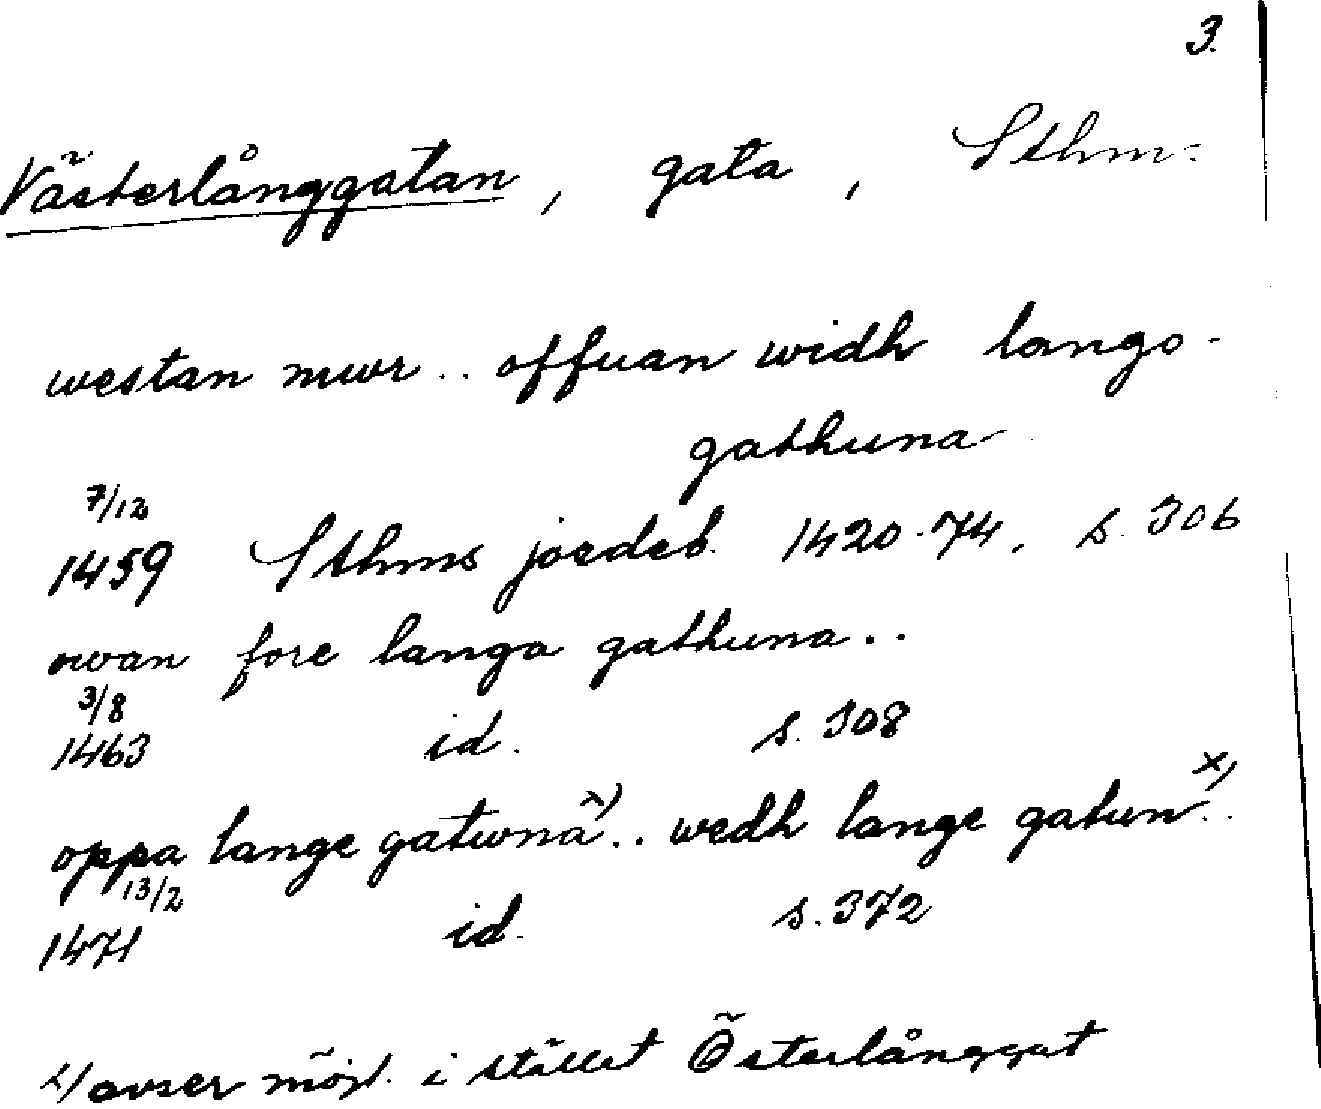 3.
Västerlånggatan, gata, Sthm.
westan mwr .. offuan widh lango-
gathuna
7/12
1459 Sthms jordeb. 1420-74, s. 306
owan fore langa gathuna..
3/8
1463 id. s. 308
oppa lange gatwna x).. wedh lange gatun x)..
13/2
1471 id. s. 372
x) avser möjl. i stället Österlånggat